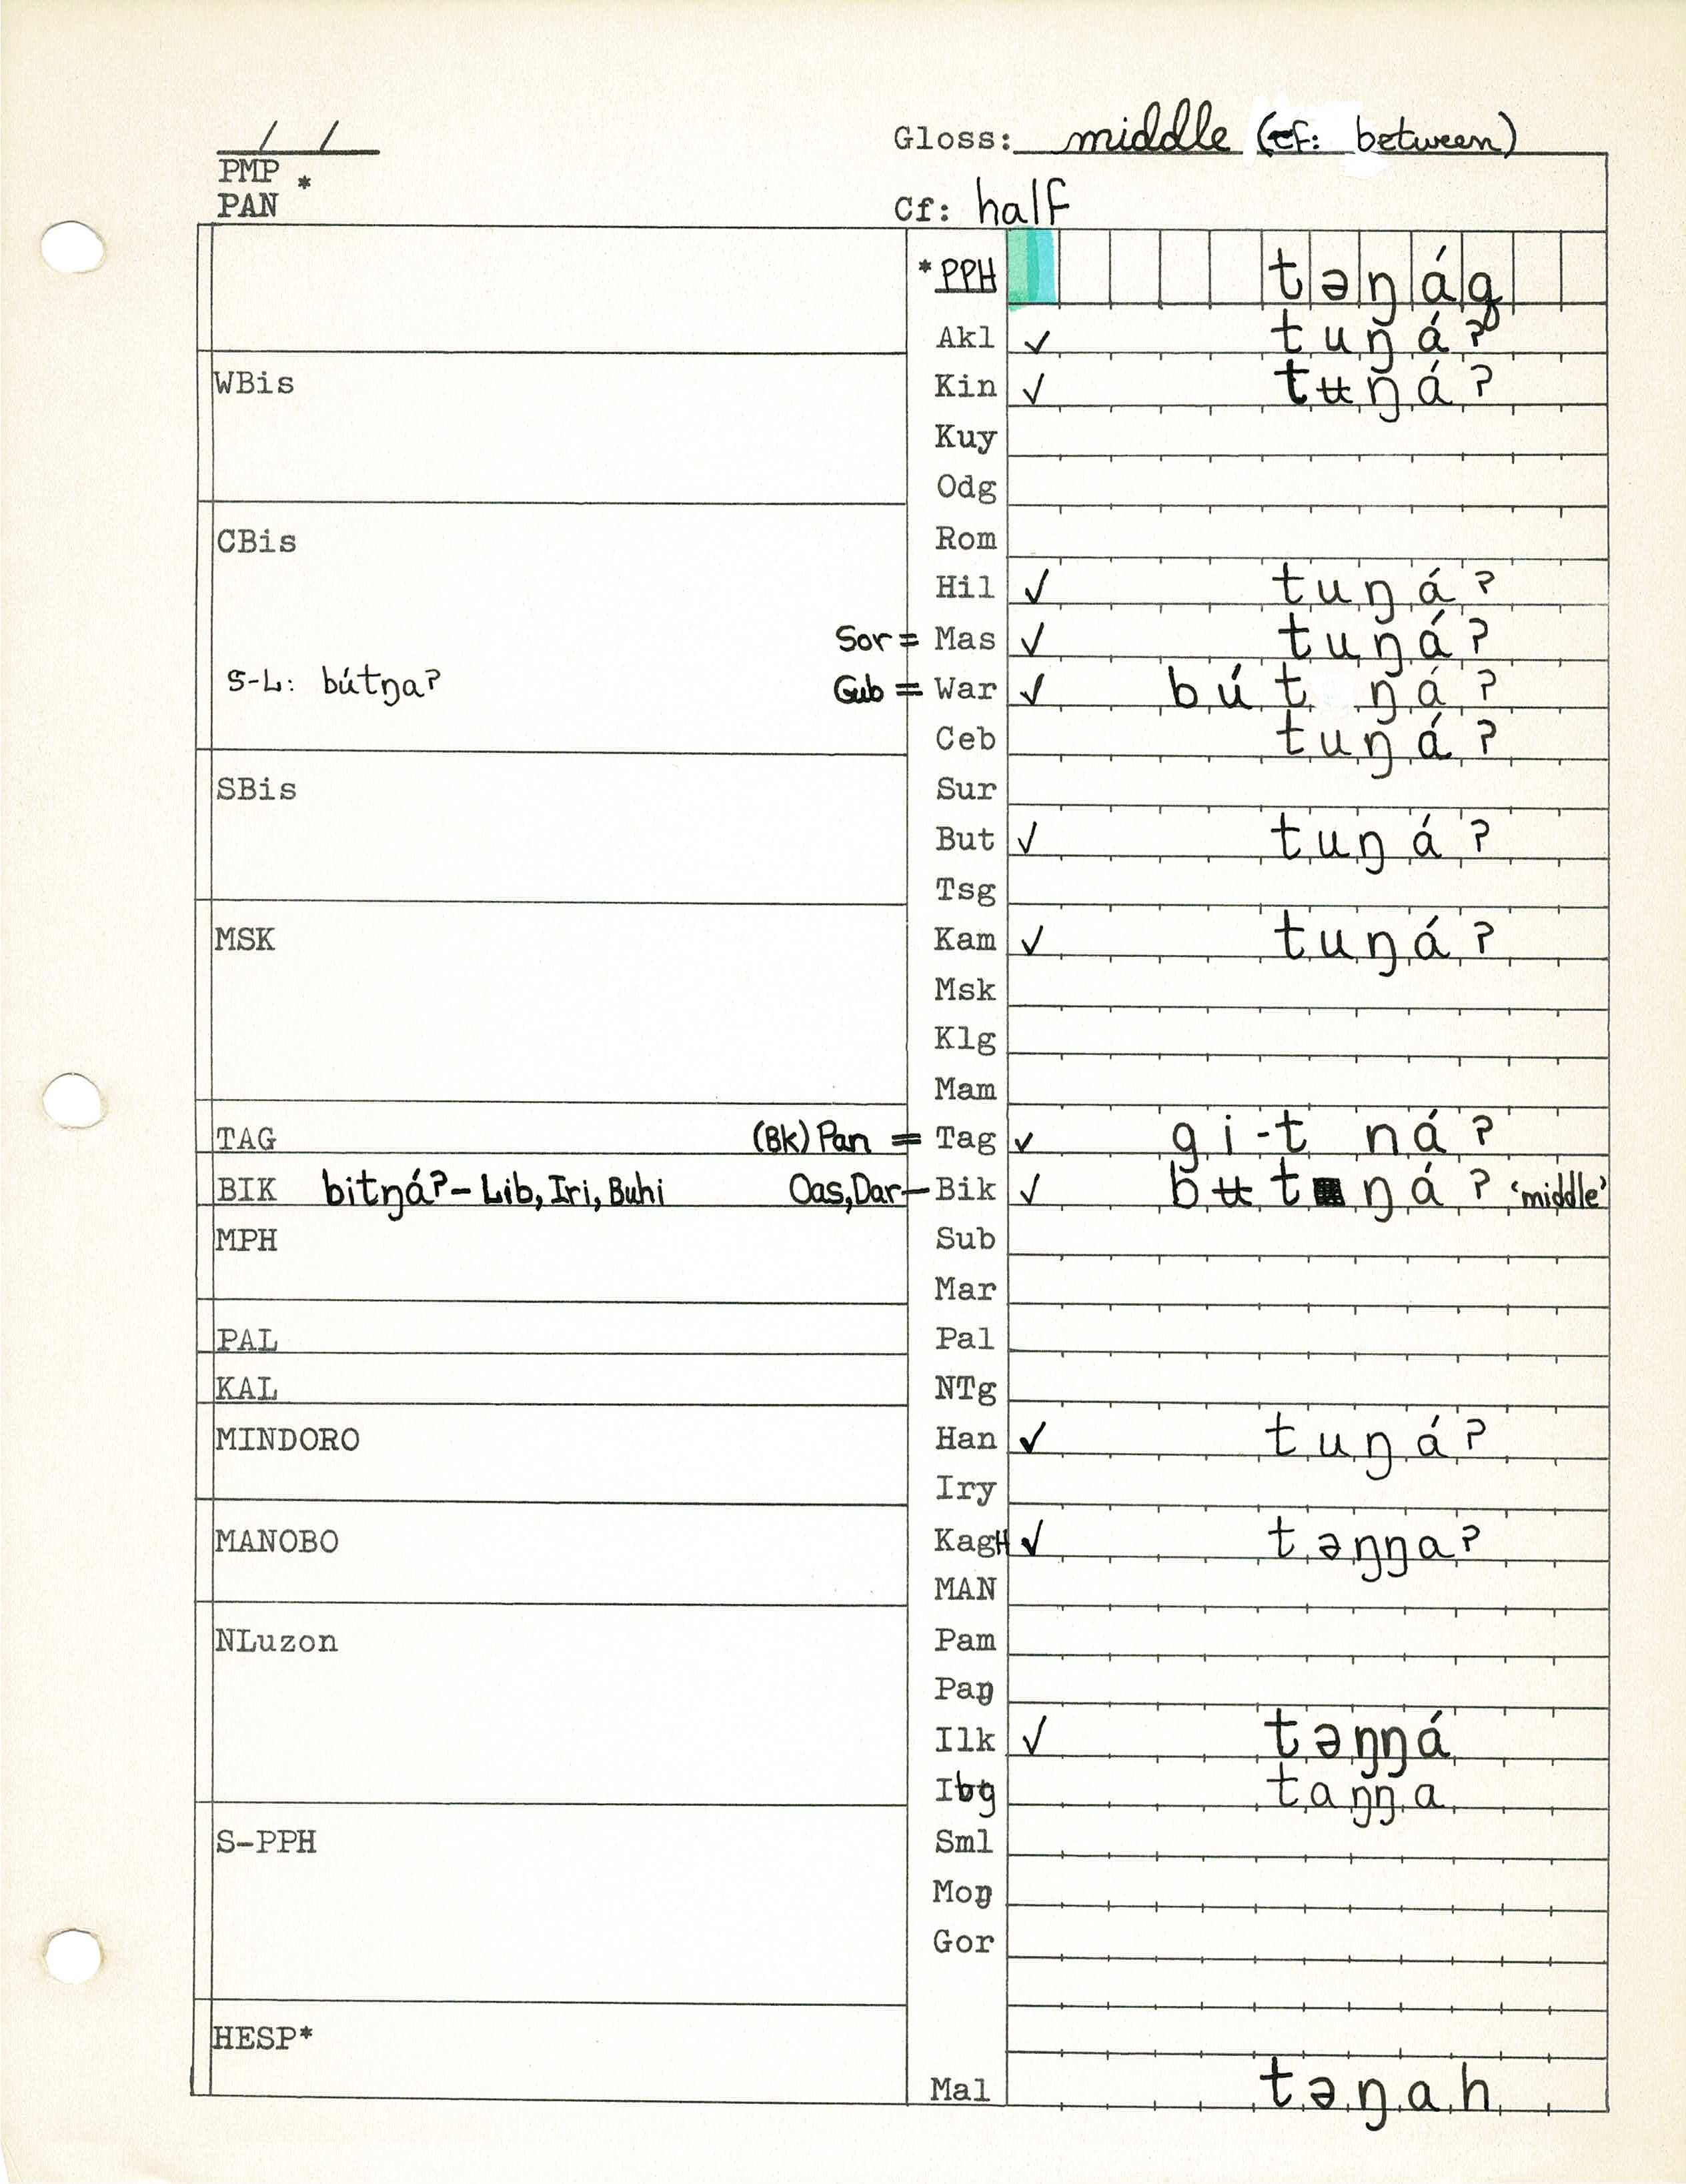 / /
Gloss: middle (cf: between)
PMP *
PAN
Cf: half
*PPH təŋáq
Akl ✓ tuŋáʔ
WBis
Kin ✓ tʉŋáʔ
Kuy
Odg
CBis
Rom
Hil ✓ tuŋáʔ
Sor = Mas ✓ tuŋáʔ
S-L: bútŋaʔ
Gub = War ✓ bút ŋáʔ
Ceb tuŋáʔ
SBis
Sur
But ✓ tuŋáʔ
Tsg
MSK
Kam ✓ tuŋáʔ
Msk
Klg
Mam
TAG (Bk) Pan = Tag ✓ gi-t náʔ
BIK bitŋáʔ - Lib, Iri, Buhi Oas, Dar - Bik ✓ bʉt ŋáʔ 'middle'
MPH
Sub
Mar
PAL Pal
KAL NTg
MINDORO
Han ✓ tuŋáʔ
Iry
MANOBO
KagH ✓ təŋŋaʔ
MAN
NLuzon
Pam
Paŋ
Ilk ✓ təŋŋá
Ibg taŋŋa
S-PPH
Sml
Moŋ
Gor
HESP*
Mal təŋah